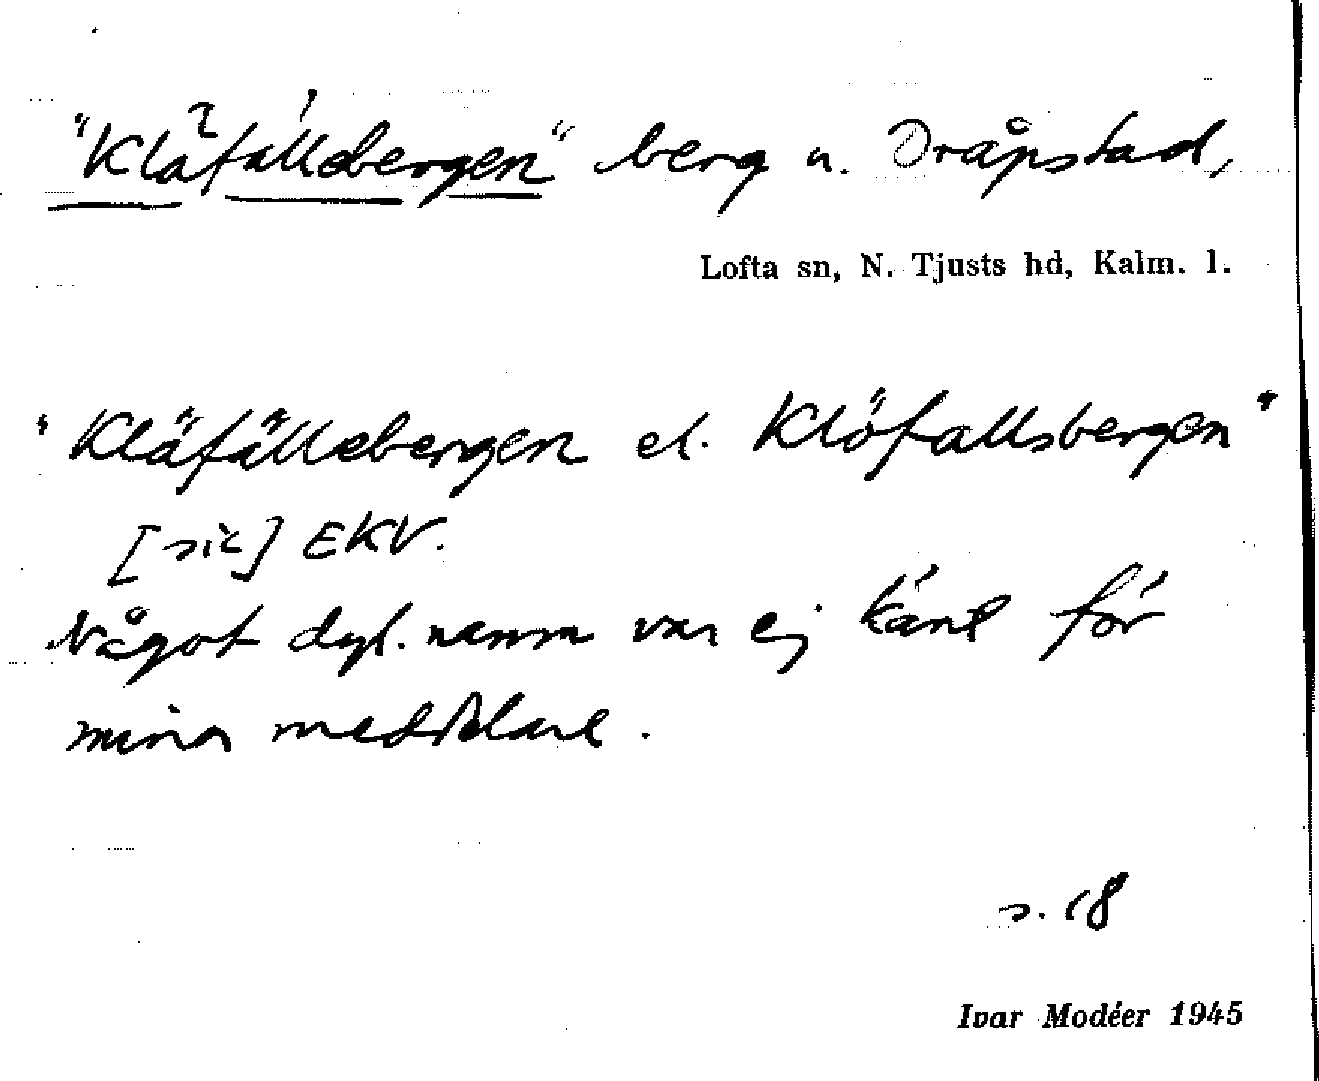 "Kläfällebergen" berg n. Dråpstad,
Lofta sn, N. Tjusts hd, Kalm. l.
"Kläfällebergen el. Klöfallsbergen"
[sic] EKV.
Något dyl. namn var ej känt för
mina meddelare.
s. 18
Ivar Modéer 1945